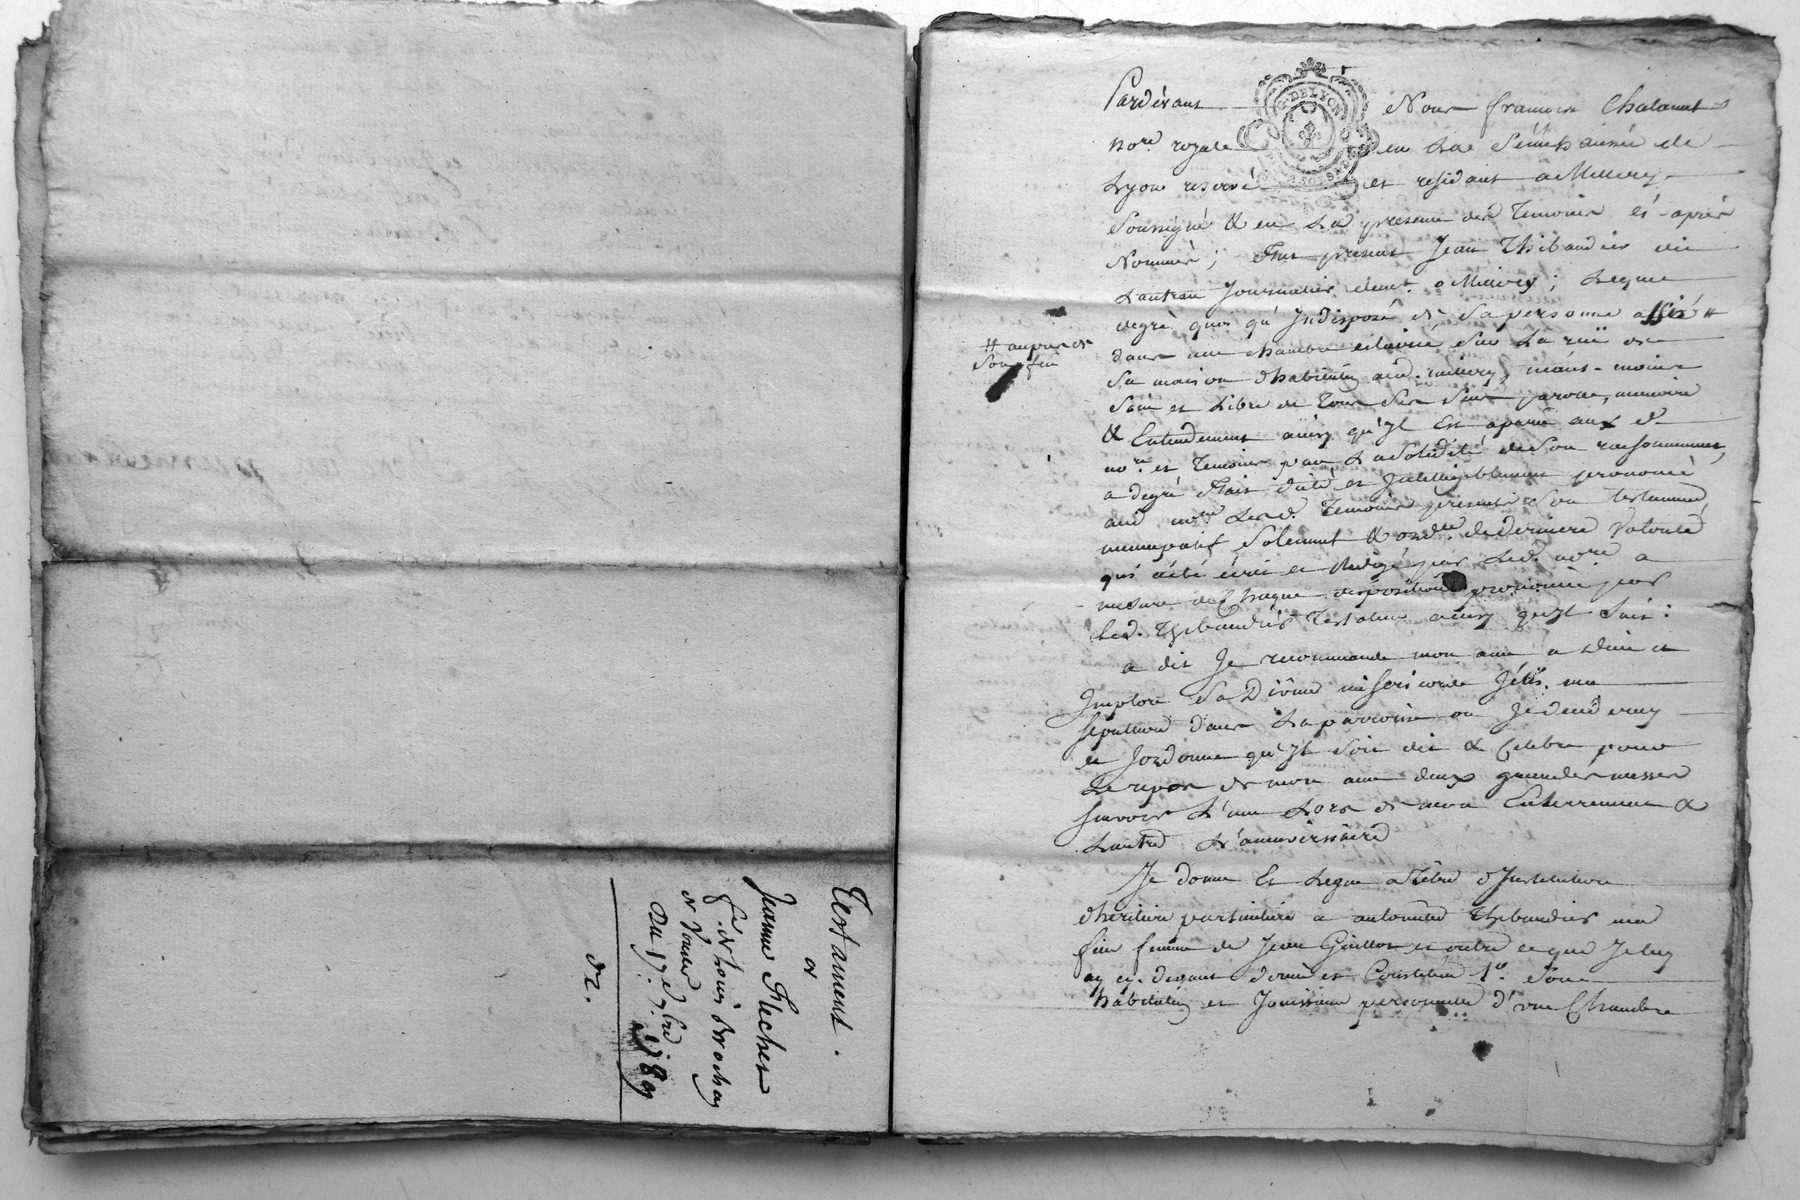 Testament.
de
Jeanne Flechet
f.e de Louis Brochay
de Vourles
Du 17.e 7bre 1789
Pardevant Nous francois Chalamet
no.re royale en La Sénéchaussée de
Lyon reservé et residant a Millery
Soussigné & en La presence des Temoins ci-après
Nommés; Fut present Jean Thibaudier dit
Lautean Journalier demt. a Millery; Lequel
degré quoi qu'Indisposé de Sa personne assis #
# aupres de
Son feu
dans une chambre éclairée Sur La rüe de
Sa maison d'habitation aud. millery, néans-moins
Sain et Libre de Tous Ses Sens parole, memoire
& Entendement ainsy qu'Il Est aparu aux d.
no.re et Temoins par La Solidité de Son raisonnement,
a degré Fait dicté et Intelligiblement prononcé
aud. no.re Lesd. Temoins presents Son testament
nuncupatif Solemnel & ord.re de derniere volonté
qui a été écrit et rédigé par Led. no.re a
mesure de Chaque disposition prononcée par
Led. Thibaudier Testateur ainsy qu'Il Suit:
a dit Je recommande mon ame a Dieu et
Implore Sa Divine misericorde J'élis ma
Sepulture dans La parroisse ou Je decederay
et J'ordonne qu'Il Soit dit & Celebré pour
Le repos de mon ame deux grandes messes
Sçavoir L'une Lors de mon Enterrement &
Lautre L'anniversaire
Je donne Et Legue a Titre d'Institution
d'heritiere particuliere a antoinette Thibaudier ma
fille femme de Jean Guillot et outre ce que Je luy
ay cy-devant donné et Constitué 1.o Son
habitation et Jouissance personnelle d'une Chambre